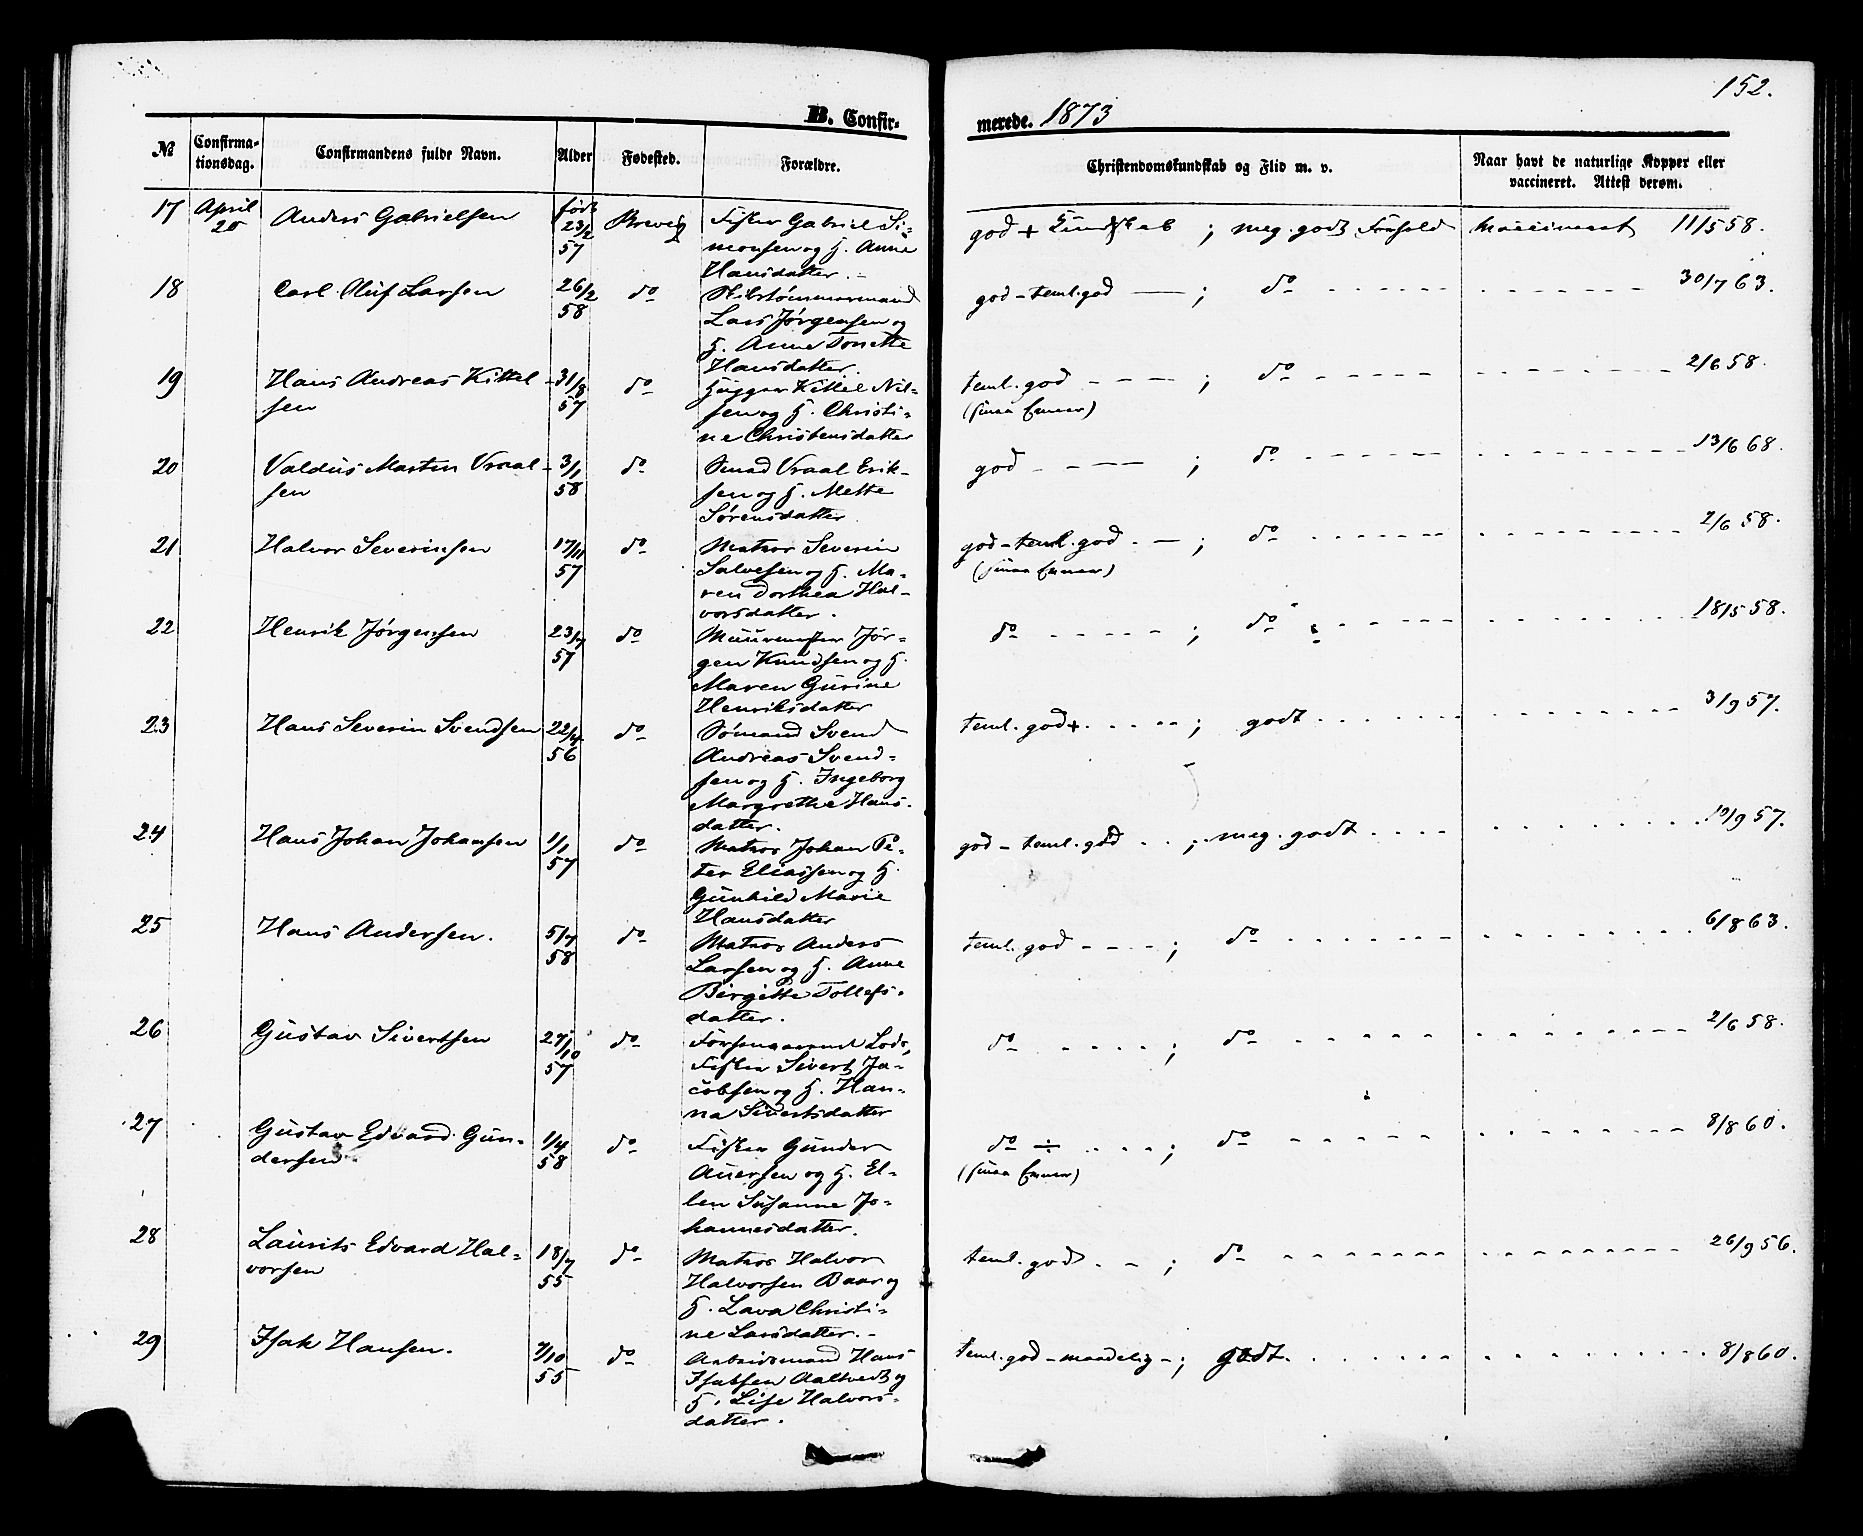 152.
B. Confir-
merede. 1873
№ Confirma-tionsdag. Confirmandens fulde Navn. Alder Fødested. Forældre. Christendomskundskab og Flid m. v. Naar havt de naturlige Kopper eller vaccineret. Attest derom.
17 April 20 Anders Gabrielsen født 23/2 57 Brevig Fisker Gabriel Si- god + Kundskab ; meg. godt Forhold vaccineret 11/5 58.
monsen og H. Anne
Hansdatter. -
18 Carl Oluf Larsen 26/2 58 do Skibstømmermand god - teml. god ; do 30/7 63.
Lars Jørgensen og
H. Anne Tonette
Hansdatter.
19 Hans Andreas Kittel- 31/8 57 do Kittel Nil- teml. god ; do 2/6 58.
sen sen og H. Christi- (smaa Evner)
ne Christensdatter
20 Valdus Martin Vraal- 3/1 58 do Smed Vraal Erik- god ; do 13/6 68.
sen sen og H. Mette
Sørensdatter
21 Halvor Severinsen 17/11 57 do Matros Severin god - teml. god ; do 2/6 58.
Salvesen og H. Ma- (smaa Evner)
ren Dorthea Hal-
vorsdatter.
22 Henrik Jørgensen 23/7 57 do Muurmester Jør- do ; do 18/5 58.
gen Knudsen og H.
Maren Gurine
Henriksdatter
23 Hans Severin Svendsen 22/4 56 do Sømand Svend teml. god + ; godt 3/9 57.
Andreas Svend-
sen og H. Ingeborg
Margrethe Hans-
datter.
24 Hans Johan Johansen 1/1 57 do Matros Johan Pe- god - teml. god ; meg. godt 10/9 57.
ter Eliassen og H.
Gunhild Marie
Hansdatter
25 Hans Andersen. 5/7 58 do Matros Anders teml. god ; do 6/8 63.
Larsen og H. Anne
Birgitte Tollefs-
datter.
26 Gustav Sivertsen 27/10 57 do Lods, do ; do 2/6 58.
Fisker Sivert Ja-
cobsen og H. Han-
na Sivertsdatter
27 Gustav Edvard Gun- 1/4 58 do Fisker Gunder do ÷ ; do 8/8 60.
dersen Auersen og H. El- (smaa Evner)
len Susanne Jo-
hannesdatter.
28 Laurits Edvard Hal- 18/7 55 do Matros Halvor teml. god ; do 26/9 56.
vorsen Halvorsen Baar og
H. Lava Christi-
ne Larsdatter. -
29 Isak Hansen. 7/10 55 do Arbeidsmand Hans teml. god - maadelig - ; godt. 8/8 60.
Isaksen Aaltvedt og
H. Lise Halvors-
datter.